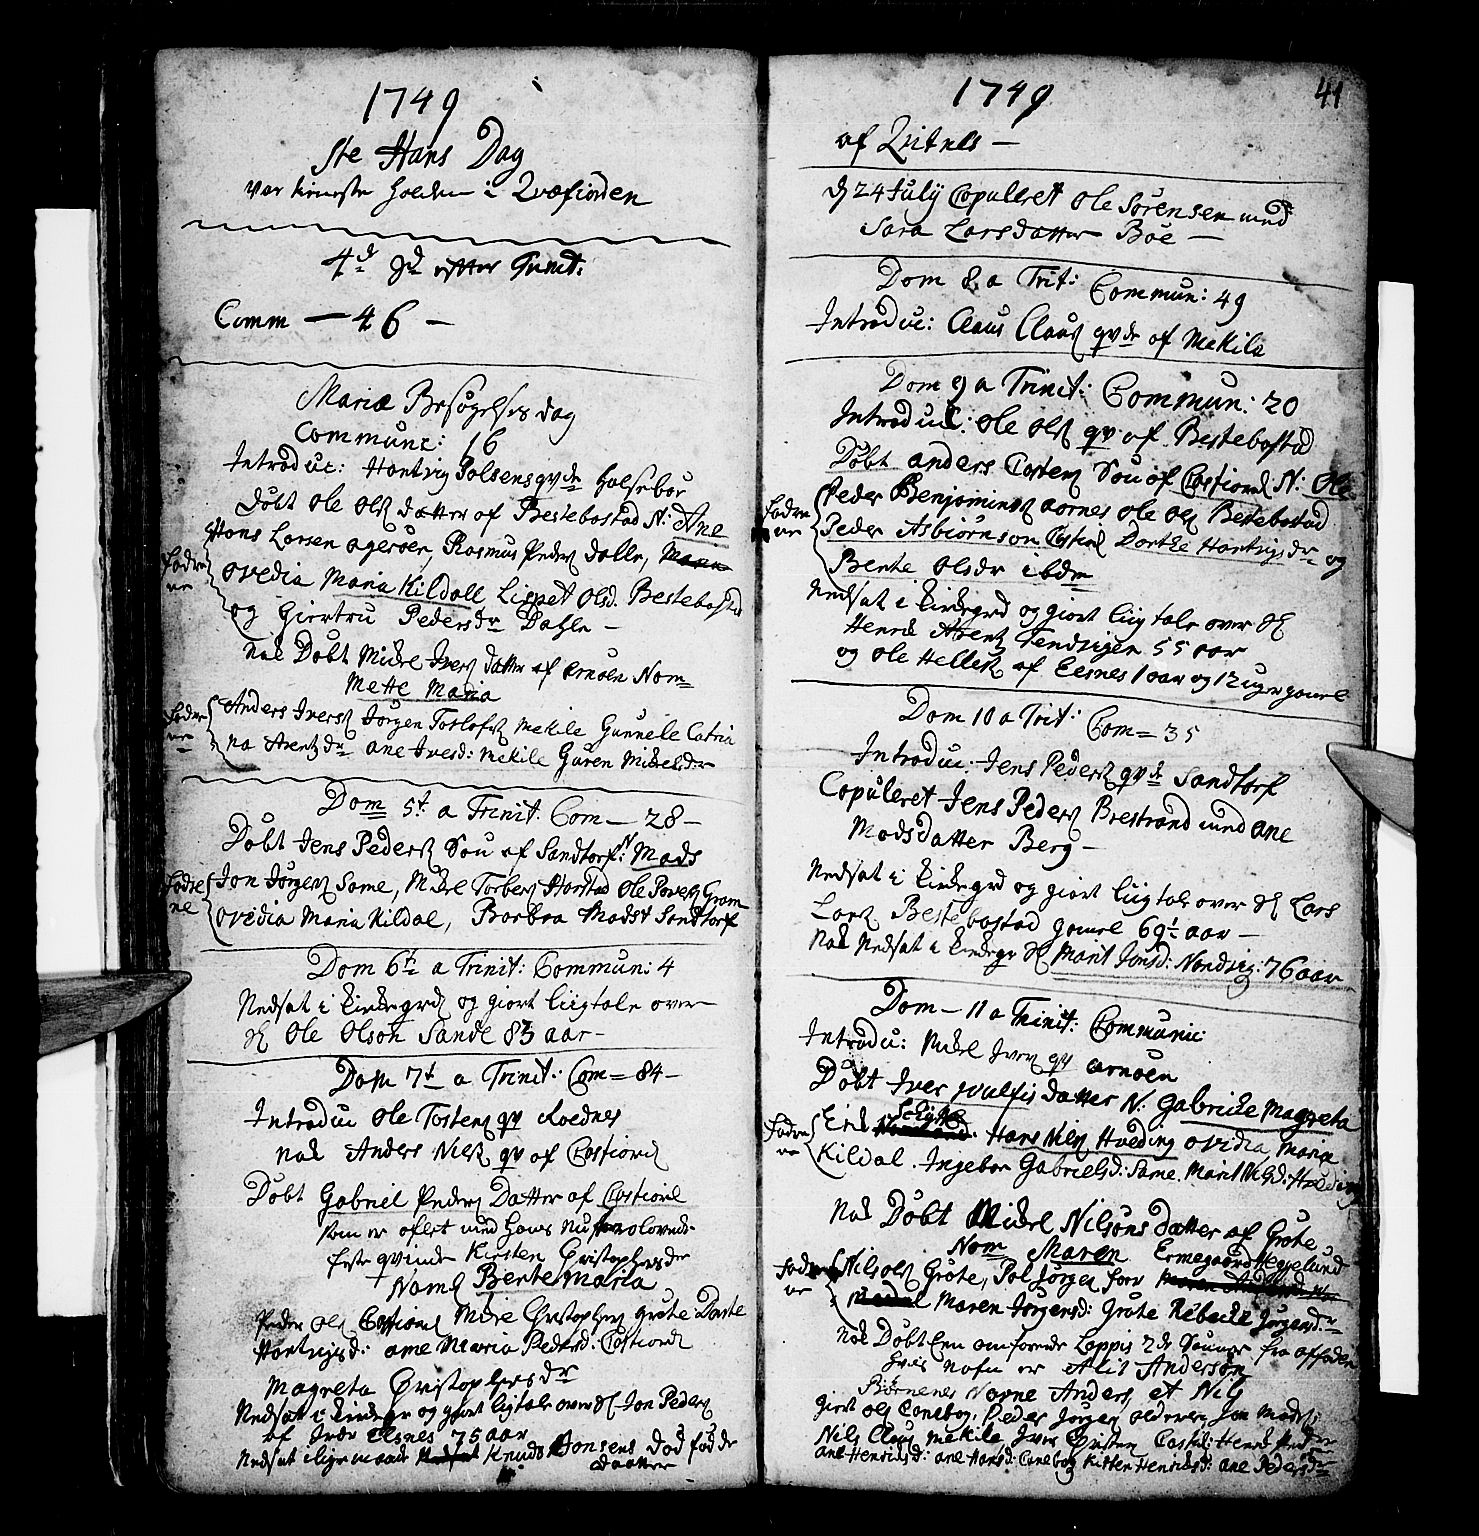 1749
Ste Hans Dag
var tieneste holden i Qvæfiorden
4d Sd efter Trinit:
Comm — 46 —
Mariæ Besøgelses dag
Communic: 16
Introduc: Hartvig Polsens qvde Halsebøe
Døbt Ole Olss datter af Bestebostad N: Ane
Hans Larsen ageröer, Rasmus Peders dalle,
Fadre
ne
ovedia Maria Kildall Lispet Olsd. Bestebostad
og Giertru Pedersdr Dahle —
Nok Døbt Mickel Ivers datter af Ernöen Nom
Mette Maria
Fadre
ne
Anders Iverss Jørgen Tollofss Mekile Gunnele Catria
na Arentzdr ane Iversd: Mekile Guren Mikelsdr
Dom 5t a Trinit: Com — 28 —
Døbt Jens Peders Søn af Sandtorf N: Mads
Fadre
ne
Jon Jørgens Same, Mikel Torbers Harstad Ole Povels Gram
ovedia Maria Kildal, Barbra Madsd Sandtorf
Dom 6te a Trinit: Commun: 4
Nedsat i kirkegrd og giort liigtale over
Sl Ole Olson Sande 83 aar —
Dom 7t a Trinit: Com = 84 —
Introduc Ole Tostens qv Roednes
nok Anders Niels qv af Castiord
Døbt Gabriel Peders Datter af Castiord
som er aflet med hans nu trolovede
feste qvinde Kirsten Christophersdr
Noms Bertemaria
Peder Ols Castiord Mikel Christophers Grøte Dorte
Hartvigsd: ane Maria Pedersd: Castiord
Magreta Christophersdr
Nedsat i kirkegr og giort ligtale over Sl Jon Peders
af Indr Elsnes 75 aar
Nedsat lige maade Knuds Hansens død fødde
daatter
1749
41
af Qvitnes —
D 24 July Copuleret Ole Sørensen med
Sara Larsdatter Böe —
Dom 8. a Trit: Commun: 49
Introduc: Claus Claus qvde af Mekile
Dom 9 a Trinit: Commun: 20
Introduc: Ole Ols qv af Bestebostad
Døbt anders Tostens Søn af Castiord N: Ole
Fadre
ne
Peder Benjamins aarnes Ole Ols Bestebostad
Peder Asbiörnson Castiord Dorthe Hartvigsdr og
Berte Olsdr ibdm
Nedsat i kirkegrd og giort liigtale over Sl
Henrik Arentz Tendvigen 55 aar
og Ole Helless af Elsnes 1 aar og 12 uger gamel
Dom 10 a Trit: Com = 35
Introduc: Jens Peders qvd Sandtorf
Copuleret Jens Peders Brestrand med ane
Madsdatter Berg —
Nedsat i kirkegrd og giort liigtale over Sl Lars
Lars Bestebostad gamel 69½ aar —
Nok Nedsat i kirkegr Sl Marit Jonsd: Nordvig: 76 aar
Dom — 11 a Trinit: Communic:
Introdu: Mikel Ivers qv arnöen
Døbt Iver Wulfss datter N: Gabriele Magreta
Fadre
ne
Erik Schytte Hans Niels Hveding ovidia, Maria
Kildal. Ingebor Gabrielsd: same. Marit Nilsd: Hveding
Nok Døbt Mickel Nilsøns datter af Grøte
Nom Maren Ermegaard Hegelund
Fadre
ne
Nils Ols Grøte, Pol Jørgens Sørv
Maren Jørgensd: Grøte Rebecke Jørgensdr
Nok Døbt Een omfarende Lappis 2de Sønner fra affieldet
hvis nafn er Alit Anderson
Børnenes Navne Anders, et Nils
giort Ols Caneboy. Peder Jørgens Jon Mads:
Nils Claus Mekile Iver Cristens Castid: Henrik Peders
ane Henriksd: ane Hansd: Canebog Kisten Henriksd: ane Pedersdr